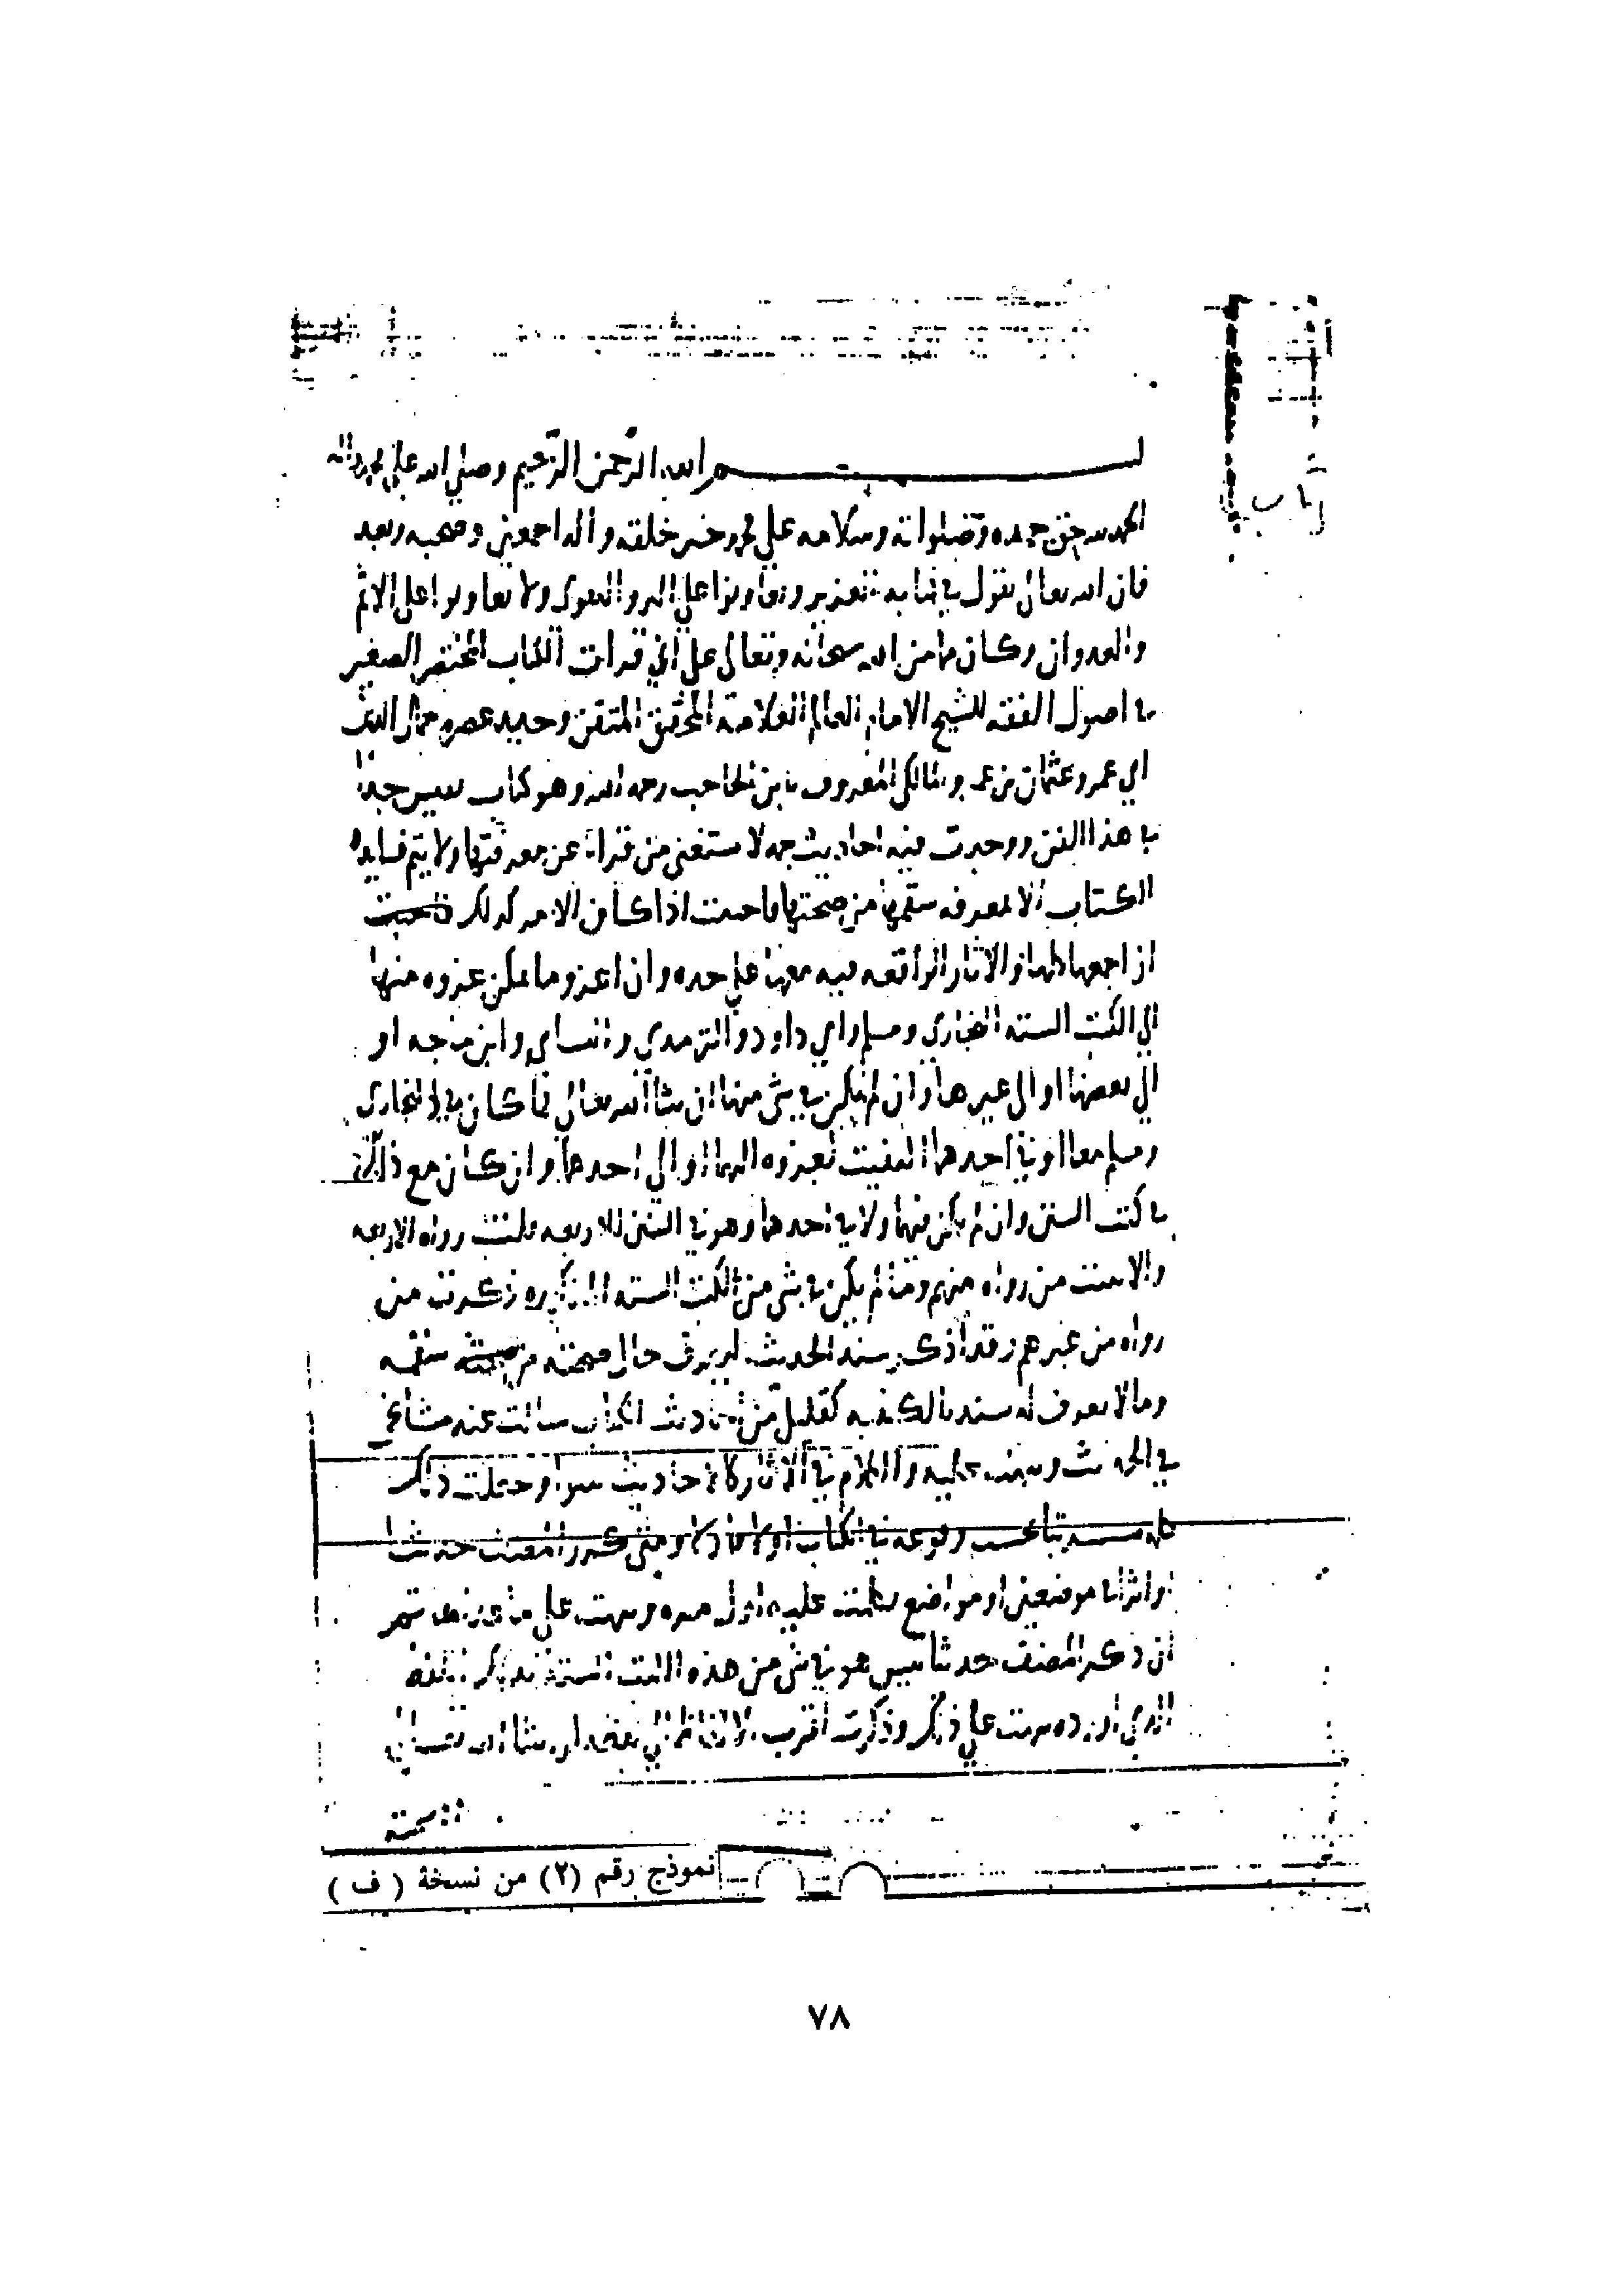 بسم الله الرحمن الرحيم وصلى الله على محمد واله
الحمد لله حق حمده وصلواته وسلامه على محمد خير خلقه واله اجمعين وصحبه وبعد
فان الله تعالى يقول في كتابه العزيز وتعاونوا على البر والتقوى ولا تعاونوا على الاثم
والعدوان وكان مما من الله سبحانه وتعالى على اني قرات الكتاب المختصر الصغير
في اصول الفقه للشيخ الامام العالم العلامة المحقق المتقن وحيد عصره جمال الدين
ابي عمرو عثمان بن عمر المالكي المعروف بابن الحاجب رحمه الله وهو كتاب نفيس جدا
في هذا الفن ووجدت فيه احاديث جمه لا يستغنى من قراه عن معرفتها ولا يتم فايده
الكتاب الا لمعرفه سقمها من صحتها فاحببت اذا كان الامر كذلك
ان اجمعها كلها والاثار الواقعه فيه معها على حده وان اعزو ما يمكن عزوه منها
الى الكتب السته البخارى ومسلم وابي داود والترمدي والنساي وابن ماجه او
الى بعضها او الى غيرها وان لم يكن في شي منها ان شا الله تعالى فما كان في البخارى
ومسلم معا او في احدهما اكتفيت بعزوه اليهما او الى احدهما وان كان مع ذلك
في كتب السنن وان لم يكن فيهما ولا في احدهما وهو في السنن الاربعه قلت رواه الاربعه
والا بينت من رواه منهم وما لم يكن في شي من الكتب السته المذكوره ذكرت من
رواه من غيرهم وقد اذكر سند الحديث ليعرف حال صحته من سقمه
وما لا يعرف له سند بالكليه كقليل من احاديث الكتاب سالت عنه مشايخي
في الحديث ونبهت عليه والكلام في الاثار كالاحاديث سوا وجعلت ذلك
كله مرتبا بحسب وقوعه في الكتاب اولا فاولا ومتى كرر المصنف حديثا
او اثرا في موضعين او مواضع تكلمت عليه اول مره ونبهت على ما عداها ثم
ان ذكر المصنف حديثا ليس هو في شي من هذه الكتب السته بذلك اللفظ
الذي اورده نبهت على ذلك وذكرت اقرب الالفاظ الى لفظه ان شا الله تعالى
نموذج رقم (٢) من نسخة ( ف )
٧٨